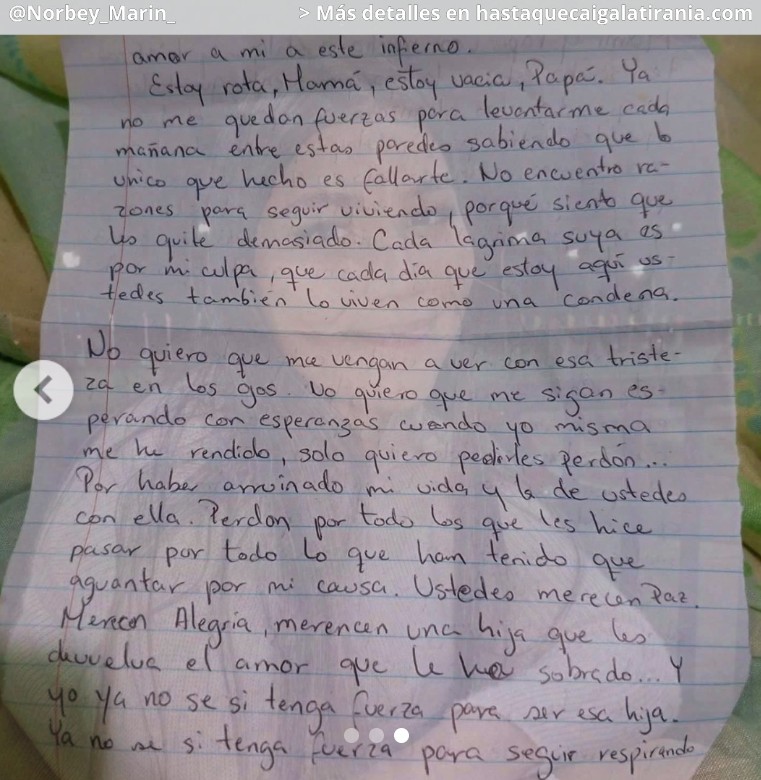 @Norbey_Marin_
> Más detalles en hastaquecaigalatirania.com
amor a mi a este infierno.
Estoy rota, Mamá, estoy vacia, Papá. Ya
no me quedan fuerzas para levantarme cada
mañana entre estas paredes sabiendo que lo
unico que hecho es fallarte. No encuentro ra-
zones para seguir viviendo, porqué siento que
les quite demasiado. Cada lágrima suya es
por mi culpa, que cada día que estoy aquí us-
tedes también lo viven como una condena.
No quiero que me vengan a ver con esa triste-
za en los ojos. No quiero que me sigan es-
perando con esperanzas cuando yo misma
me he rendido, solo quiero pedirles perdón...
Por haber arruinado mi vida y la de ustedes
con ella. Perdon por todo los que les hice
pasar por todo lo que han tenido que
aguantar por mi causa. Ustedes merecen Paz.
Merecen Alegría, merencen una hija que les
devuelva el amor que le ha sobrado... Y
yo ya no se si tenga fuerza para ser esa hija.
Ya no se si tenga fuerza para seguir respirando